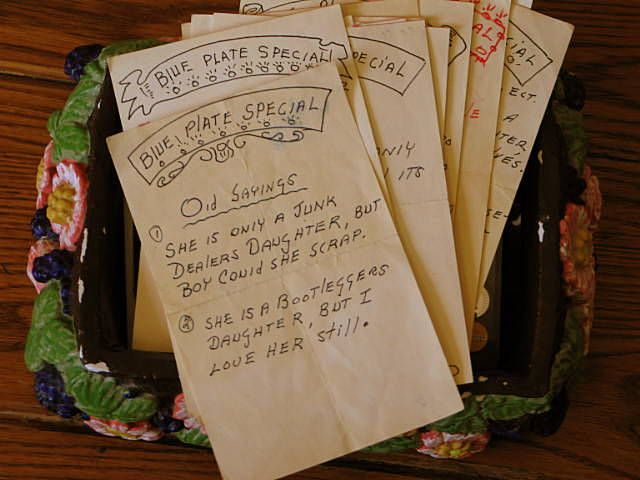 BLUE PLATE SPECIAL
SPECIAL
BLUE PLATE SPECIAL
Old SAYINGS
① SHE IS ONLY A JUNK
DEALERS DAUGHTER, BUT
BOY COUld SHE SCRAP.
② SHE IS A BOOTLEGGERS
DAUGHTER, BUT I
LOVE HER STIll.
ONLY
ITS
ECT.
A